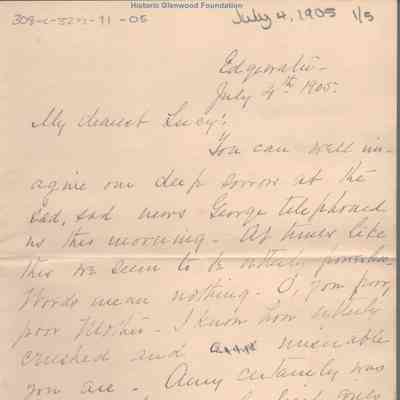 Historic Glenwood Foundation
July 4, 1905 1/5
Edgewater -
July 4th 1905.
My dearest Lucy:
You can well im-
agine our deep sorrow at the
sad, sad news George telephoned
us this morning - At times like
this we seem to be utterly powerless
Words mean nothing - O, you poor,
poor Mother - I know how utterly
crushed and miserable
you are - Amy certainly was